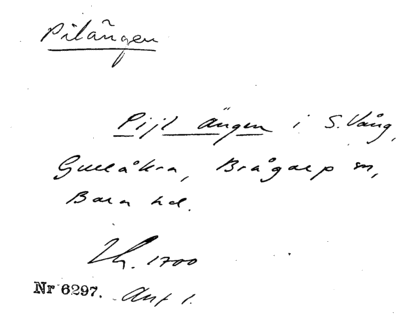 Pilängen
Pijl ängen i S. Vång,
Gullåkra, Brågarp sn,
Bara hd.
Lh. 1700
Nr 6297. Ant 1.